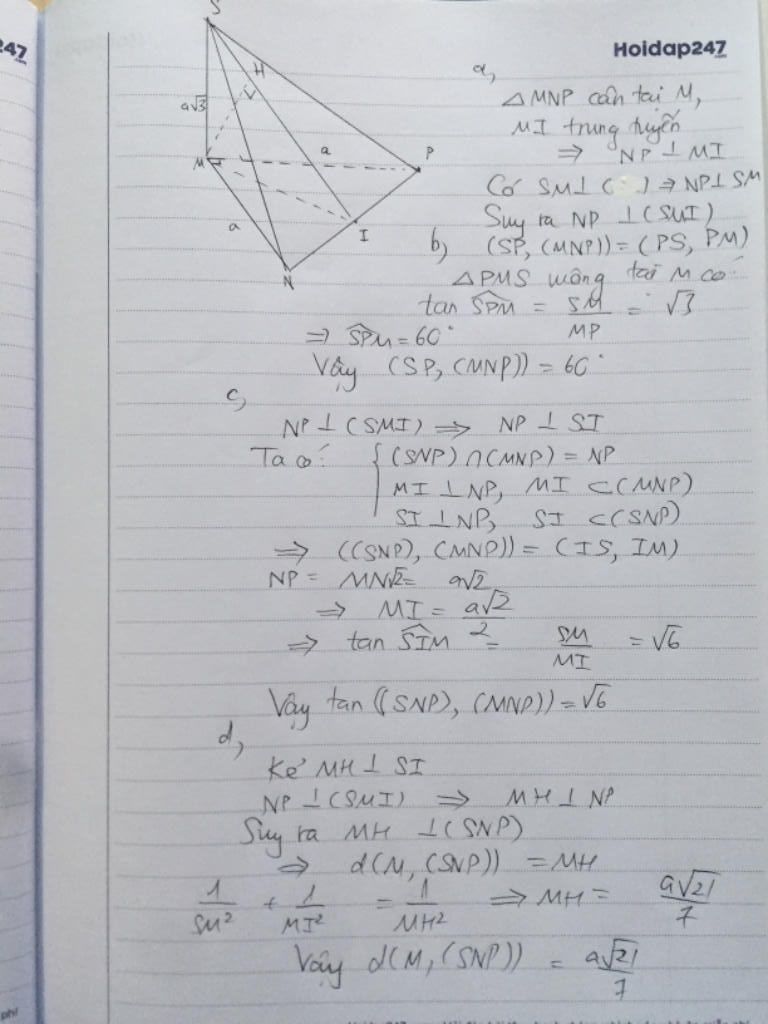 247
Hoidap247
.com
S
H
a√3
a
M
P
a
I
N
a,
△MNP cân tại M,
MI trung tuyến
⇒ NP ⊥ MI
Có SM⊥( ) ⇒ NP⊥SM
Suy ra NP ⊥(SMI)
b) (SP, (MNP)) = (PS, PM)
△PMS vuông tại M có:
tan SPM^ = SM/MP = √3
⇒ SPM^ = 60°
Vậy (SP, (MNP)) = 60°
c,
NP⊥(SMI) ⇒ NP ⊥ SI
Ta có: { (SNP) ∩(MNP) = NP
MI ⊥NP, MI ⊂(MNP)
SI ⊥NP, SI ⊂(SNP)
⇒ ((SNP), (MNP)) = (IS, IM)
NP = MN√2 = a√2
⇒ MI = a√2/2
⇒ tan SIM^ = SM/MI = √6
Vậy tan((SNP), (MNP)) = √6
d,
Kẻ MH⊥ SI
NP ⊥(SMI) ⇒ MH⊥ NP
Suy ra MH ⊥(SNP)
⇒ d(M, (SNP)) = MH
1/SM² + 1/MI² = 1/MH² ⇒ MH = a√21/7
Vậy d(M, (SNP)) = a√21/7
phí